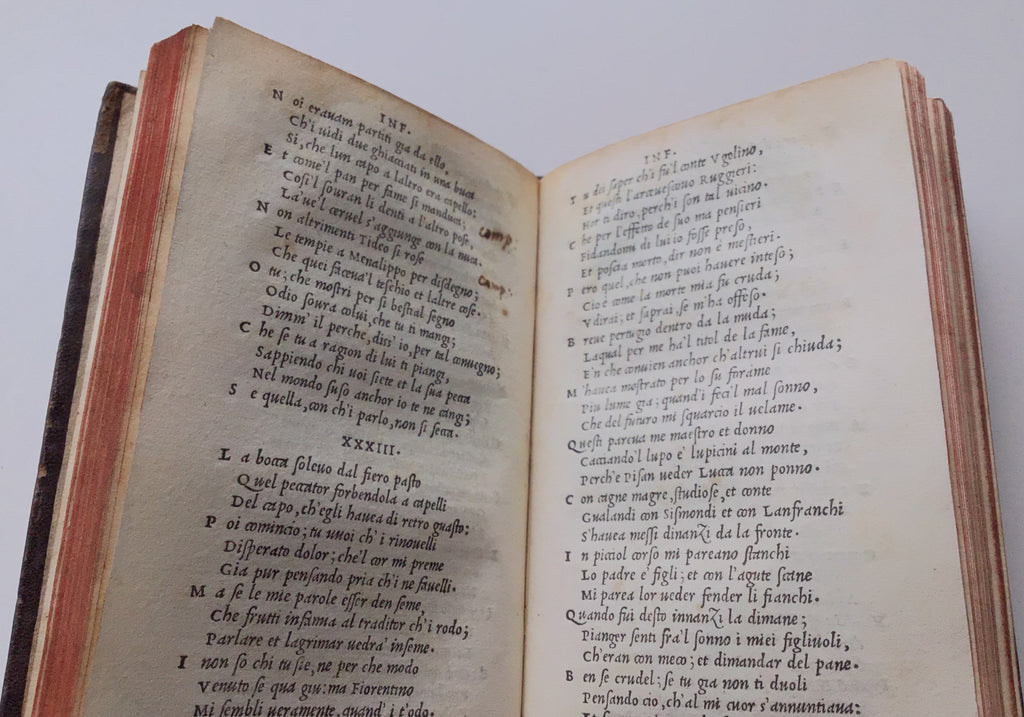 INF.
N oi erauam partiti gia da ello.
Ch'i uidi due ghiacciati in una buca
Si, che lun capo a laltro era capello:
E t come'l pan per fame si manduca;
Cosi'l souran li denti a l'altro pose,
La'ue'l ceruel s'aggiunge con la nuca.
N on altrimenti Tideo si rose
Le tempie a Menalippo per disdegno;
Che quei faceua'l teschio et laltre cose.
O tu; che mostri per si bestial segno
Odio soura colui, che tu ti mangi;
Dimm' il perche, diss' io, per tal conuegno;
C he se tu a ragion di lui ti piangi,
Sappiendo chi uoi siete et la sua pecca
Nel mondo suso anchor io te ne cangi;
S e quella, con ch'i parlo, non si secca.
XXXIII.
L a bocca soleuo dal fiero pasto
Quel peccator forbendola a capelli
Del capo, ch'egli hauea di retro guasto:
P oi comincio; tu uuoi ch'i rinouelli
Disperato dolor; che'l cor mi preme
Gia pur pensando pria ch'i ne fauelli.
M a se le mie parole esser den seme,
Che frutti infamia al traditor ch'i rodo;
Parlare et lagrimar uedra' inseme.
I non so chi tu sie, ne per che modo
Venuto se qua giu: ma Fiorentino
Mi sembli ueramente, quand' i t'odo.
camp.
camp:
INF.
T u dei saper ch'i fu'l conte Vgolino,
Et questi l'arciuescouo Ruggieri:
Hor ti diro, perch'i son tal uicino.
C he per l'effetto de suo ma pensieri
Fidandomi di lui io fosse preso,
Et poscia morto, dir non è mestieri.
P ero quel, che non puoi hauere inteso;
Cio è come la morte mia fu cruda;
Vdirai; et saprai, se m'ha offeso.
B reue pertugio dentro da la muda;
Laqual per me ha'l titol de la fame,
E'n che conuien anchor ch'altrui si chiuda;
M 'hauea mostrato per lo su forame
Piu lume gia; quand'i feci'l mal sonno,
Che del futuro mi squarcio il uelame.
Questi pareua me maestro et donno
Cacciando'l lupo e' lupicini al monte,
Perch'e Pisan ueder Lucca non ponno.
C on cagne magre, studiose, et conte
Gualandi con Sismondi et con Lanfranchi
S'hauea messi dinanzi da la fronte.
I n picciol corso mi pareano stanchi
Lo padre e' figli; et con l'agute scane
Mi parea lor ueder fender li fianchi.
Quando fui desto innanzi la dimane;
Pianger senti fra'l sonno i miei figliuoli,
Ch'eran con meco; et dimandar del pane.
B en se crudel; se tu gia non ti duoli
Pensando cio, ch'al mi cuor s'annuntiaua: